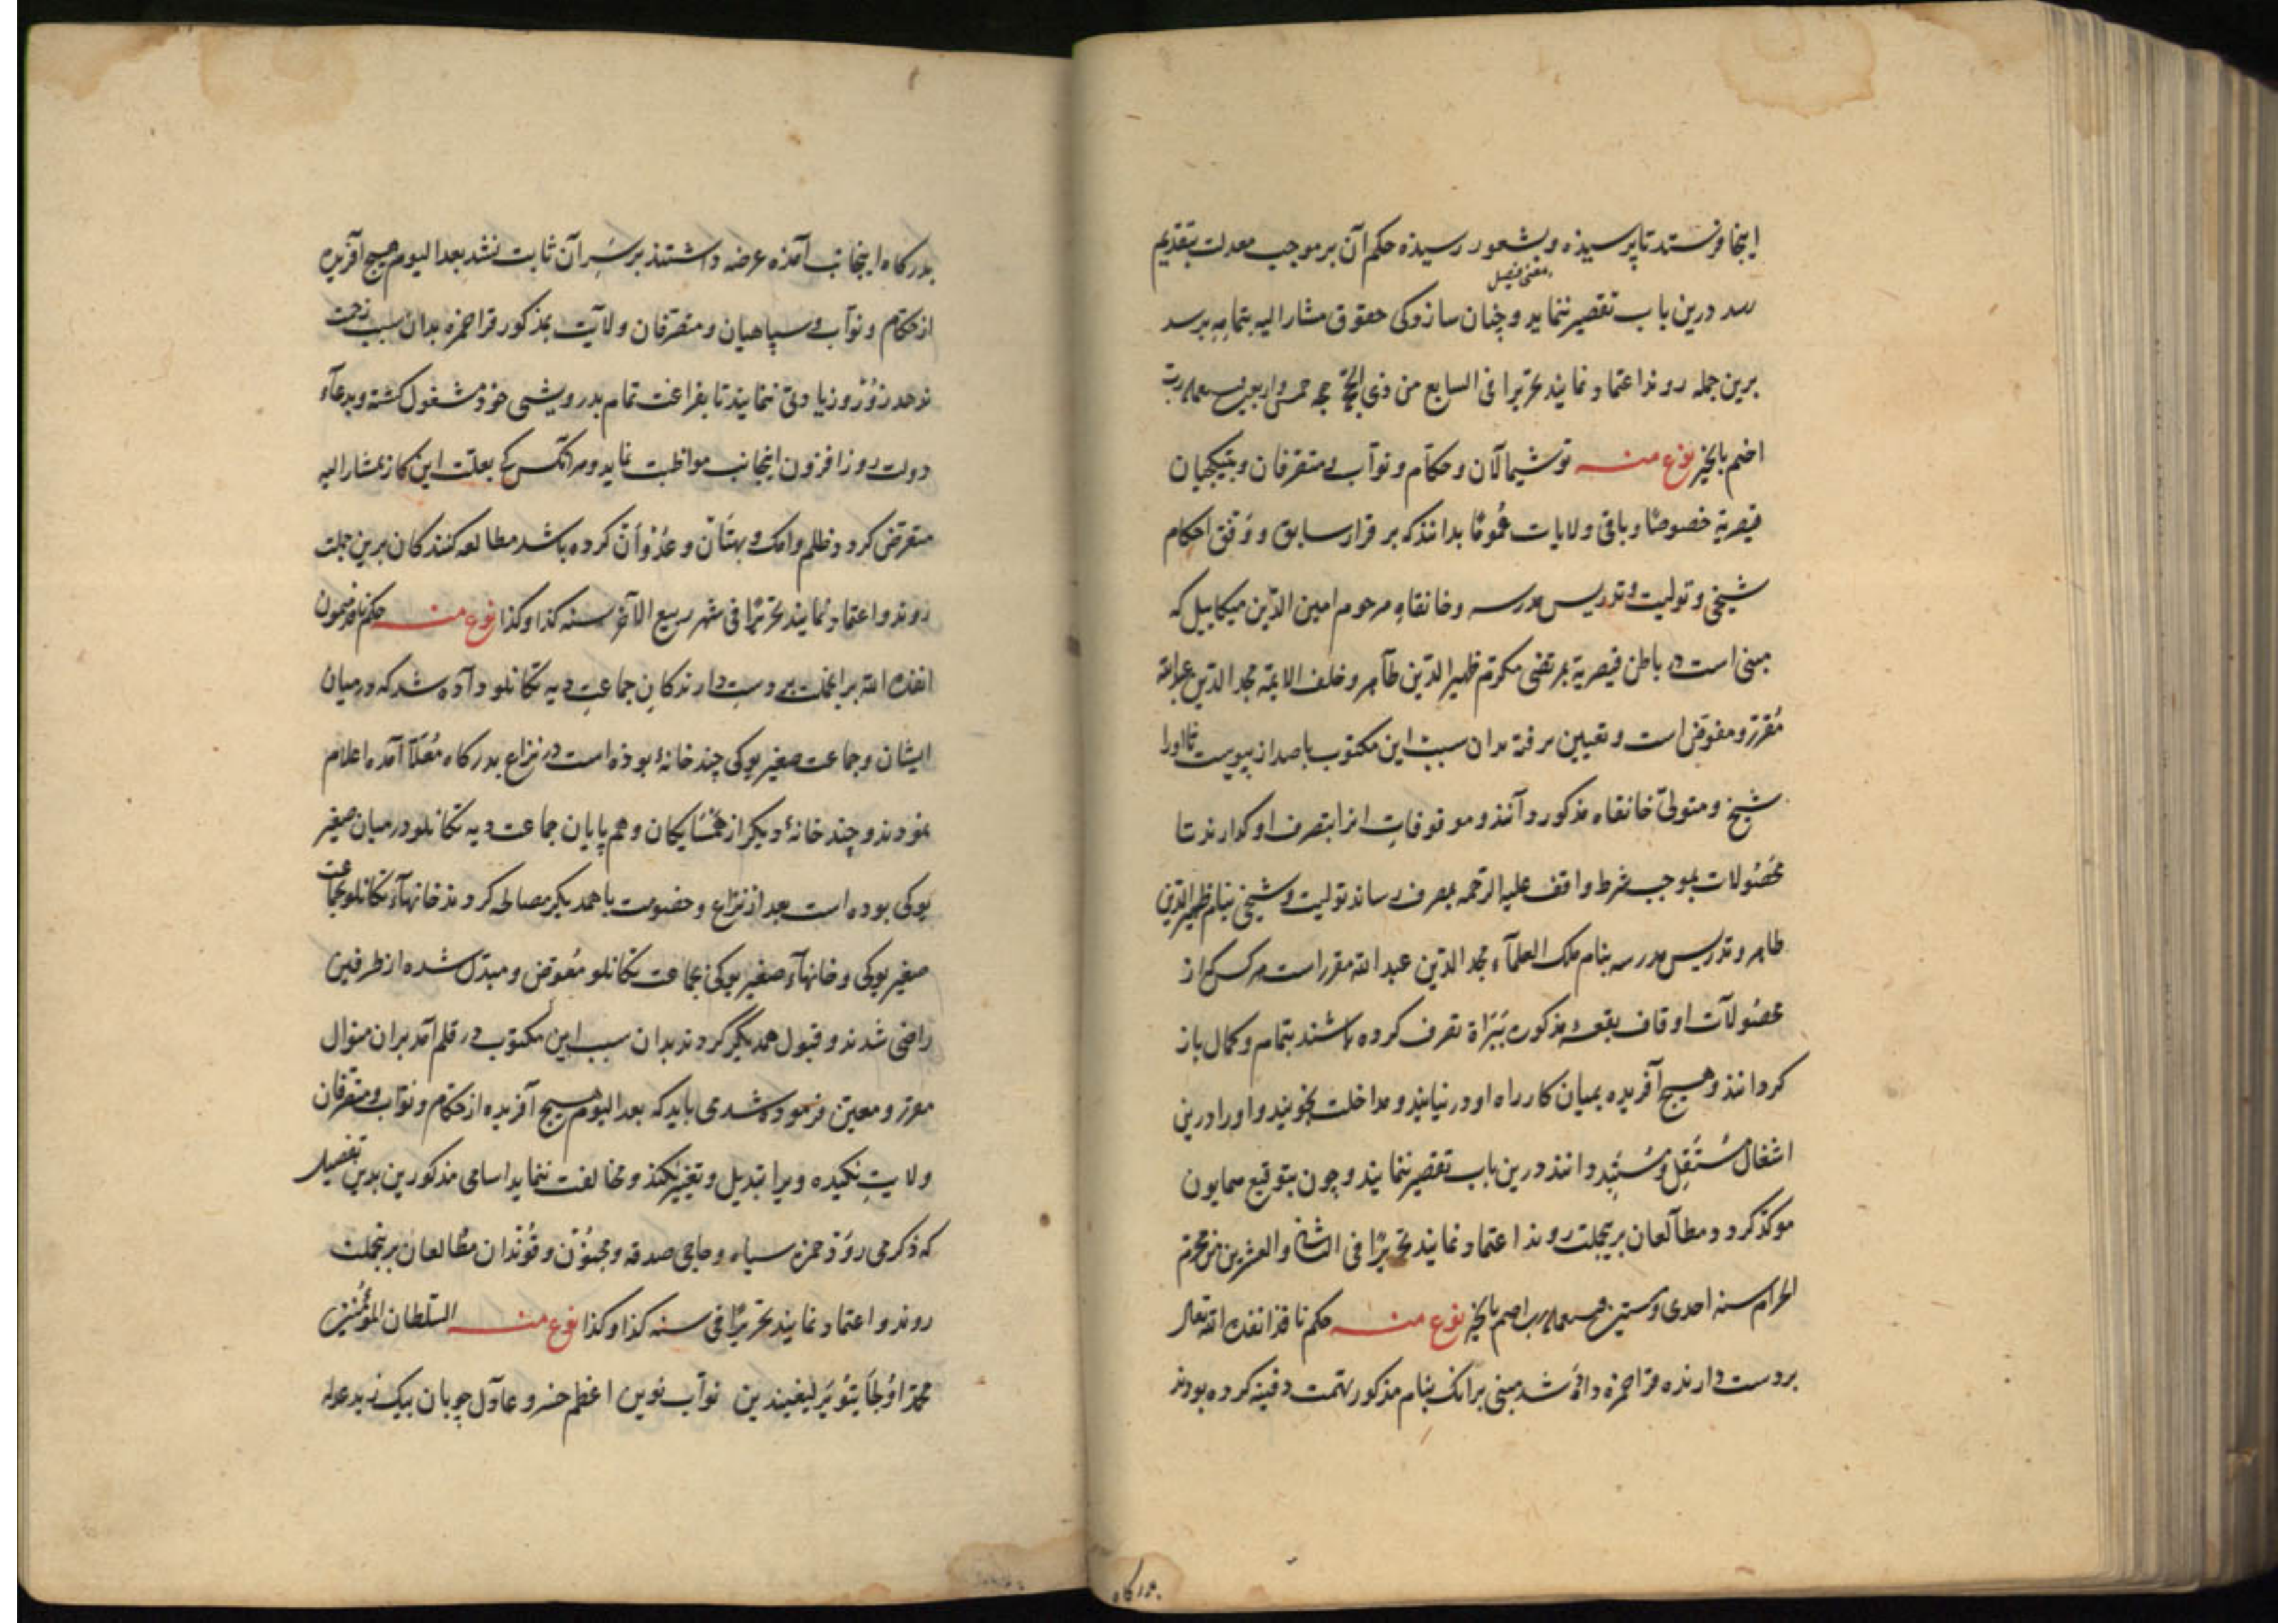 اینجا فرستند تا پرسیذه و بشعور رسیذه حکم آن بر موجب معدلت بتقدیم
بمعنی فیصل
رسد درین باب تقصیر ننماید و چنان سازد کی حقوق مشار الیه بتمامه برسد
برین جمله روند اعتماد نمایند تحریرا فی السابع من ذی الحجة حجه خمس و اربعین سبعمایه رب
اختم بالخیر نوع منه توشیمالان و حکام و نواب و متصرفان و بتیکجیان
قیصریة خصوصا و باقی ولایات عموما بدانند که بر قرار سابق و وفق احکام
شیخی و تولیت و تدریس مدرسه و خانقاه مرحوم امین الدین میکاییل که
مبنی است در باطن قیصریة بمرتضی مکرم ظهیر الدین طاهر و خلف الایمة مجد الدین عبدالله
مقرر و مفوض است و تعیین رفته بدان سبب این مکتوب باصدار پیوست تا اورا
شیخ و متولی خانقاه مذکور دانند و موقوفات انرا بتصرف او کذارند تا
محصولات بموجب شرط واقف علیه الرحمه بمصرف رساند تولیت و شیخی بنام ظهیر الدین
طاهر و تدریس مدرسه بنام ملک العلماء مجد الدین عبد الله مقرر است هرکس کی از
محصولات اوقاف بقعه مذکوره تصرف کرده باشند بتمام و کمال باز
کردانند و هیچ آفریده بمیان کار راه او در نیایند و مداخلت نجویند و اورا درین
اشغال مستقل و مستبد دانند درین باب تقصیر ننمایند و چون بتوقیع همایون
موکد کردد مطالعان بریجملت روند اعتماد نمایند تحریرا فی الثانی و العشرین من محرم
الحرام سنه احدی و ستین سبعمایه رب اختم بالخیر نوع منه حکم نافذ انفذه الله تعالی
بر دست دارنده قرا حمزه داده شد مبنی برانک بنام مذکور بتهمت دفینه کرده بودند
بدرکاه
بدرکاه اینجانب آمذه عرضه داشتند بر سر آن ثابت نشد بعد الیوم هیچ آفریده
از حکام و نواب و سپاهیان و متصرفان ولایت بمذکور قرا حمزه بدان سبب زحمت
ندهد و زور و زیادتی ننمایند تا بفراغت تمام بدرویشی خوذ مشغول کشته و بدعاء
دولت روز افزون اینجانب مواظبت نماید و هر آنکس کی بعلت این کار بمشار الیه
متعرض کردد ظلم و افک و بهتان و عدوان کرده باشد مطالعه کنندکان برین جملت
روند و اعتماد نمایند تحریرا فی شهر ربیع الآخر سنه کذا و کذا نوع منه حکم نافذ همیون
انفذه الله بر دست دارندکان جماعت دیه تکانلو داده شد که در میان
ایشان و جماعت صغیر بوکی چند خانۀ بوذه است در نزاع بدرکاه معلا آمده اعلام
نمودند و چند خانۀ دیکر از همسایکان و هم پایان جماعت دیه تکانلو در میان صغیر
بوکی بوده است بعد از نزاع و خصومت با همدیکر مصالحه کردند خانهاء تکانلو بجماعت
صغیر بوکی و خانهاء صغیر بوکی بجماعت تکانلو معوض و مبدل شده از طرفین
راضی شدند و قبول همدیکر کردند بدان سبب این مکتوب در قلم آمد بران منوال
مقرر و معین فرموده شد می باید که بعد الیوم هیچ آفریده از حکام و نواب و متصرفان
ولایت نکیده ویرا تبدیل و تغییر نکند و مخالفت ننماید اسامی مذکورین بدین تفصیل
که ذکر می روذ حمزه سیاه و حاجی صدقه و مجنون و قوندان مطالعان بریجملت
روند و اعتماد نمایند تحریرا فی سنه کذا و کذا نوع منه السلطان المؤمنین
محمد اولجایتو یرلیغیندین نواب نوین اعظم خسرو عادل چوبان بیک